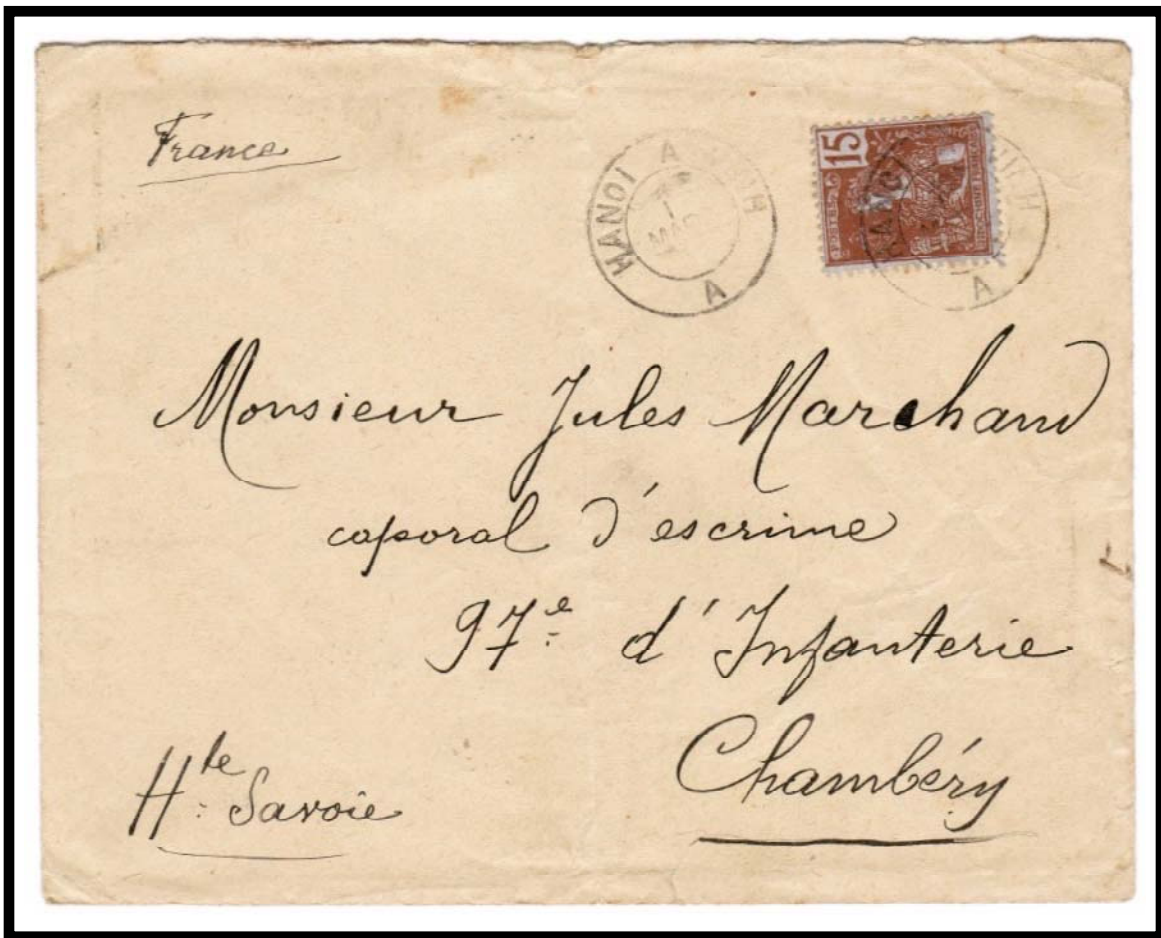 France
HANOI A
1
MAR
A
15
HANOI
A
Monsieur Jules Marchand
caporal d'escrime
97e d'Infanterie
Chambéry
Hte Savoie